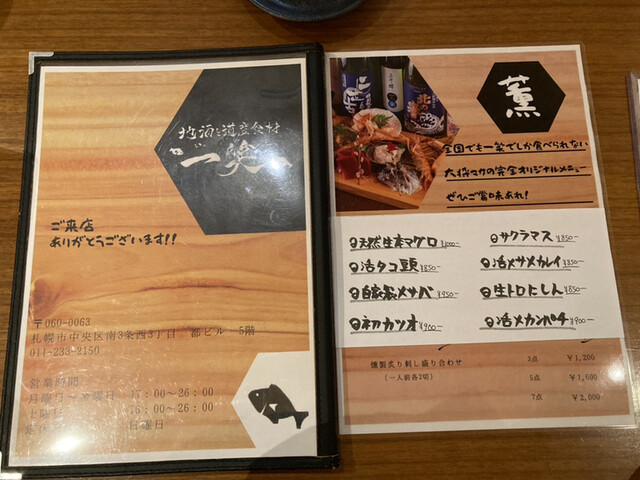 地酒と道産食材
一癸
ご来店
ありがとうございます!!
〒060-0063
札幌市中央区南3条西3丁目 都ビル 5階
011-233-2150
営業時間
月曜日～金曜日 17:00～26:00
土曜日 16:00～26:00
定休日 日曜日
薫
全国でも一癸でしか食べられない
大将マサの完全オリジナルメニュー
ぜひご賞味あれ!
天然生本マグロ
サクラマス ¥850-
活タコ頭 ¥850-
活〆サメカレイ ¥850-
自家製〆サバ ¥950-
生トロにしん ¥850-
初カツオ ¥900-
活〆カンパチ ¥900-
燻製炙り刺し盛り合わせ 3点 ¥1,200
(一人前各2切) 5点 ¥1,600
7点 ¥2,000